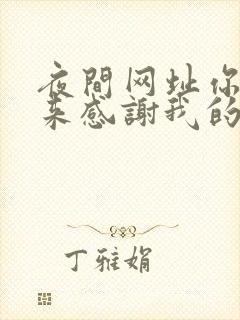 夜間网址你
来感謝我的
丁雅娟